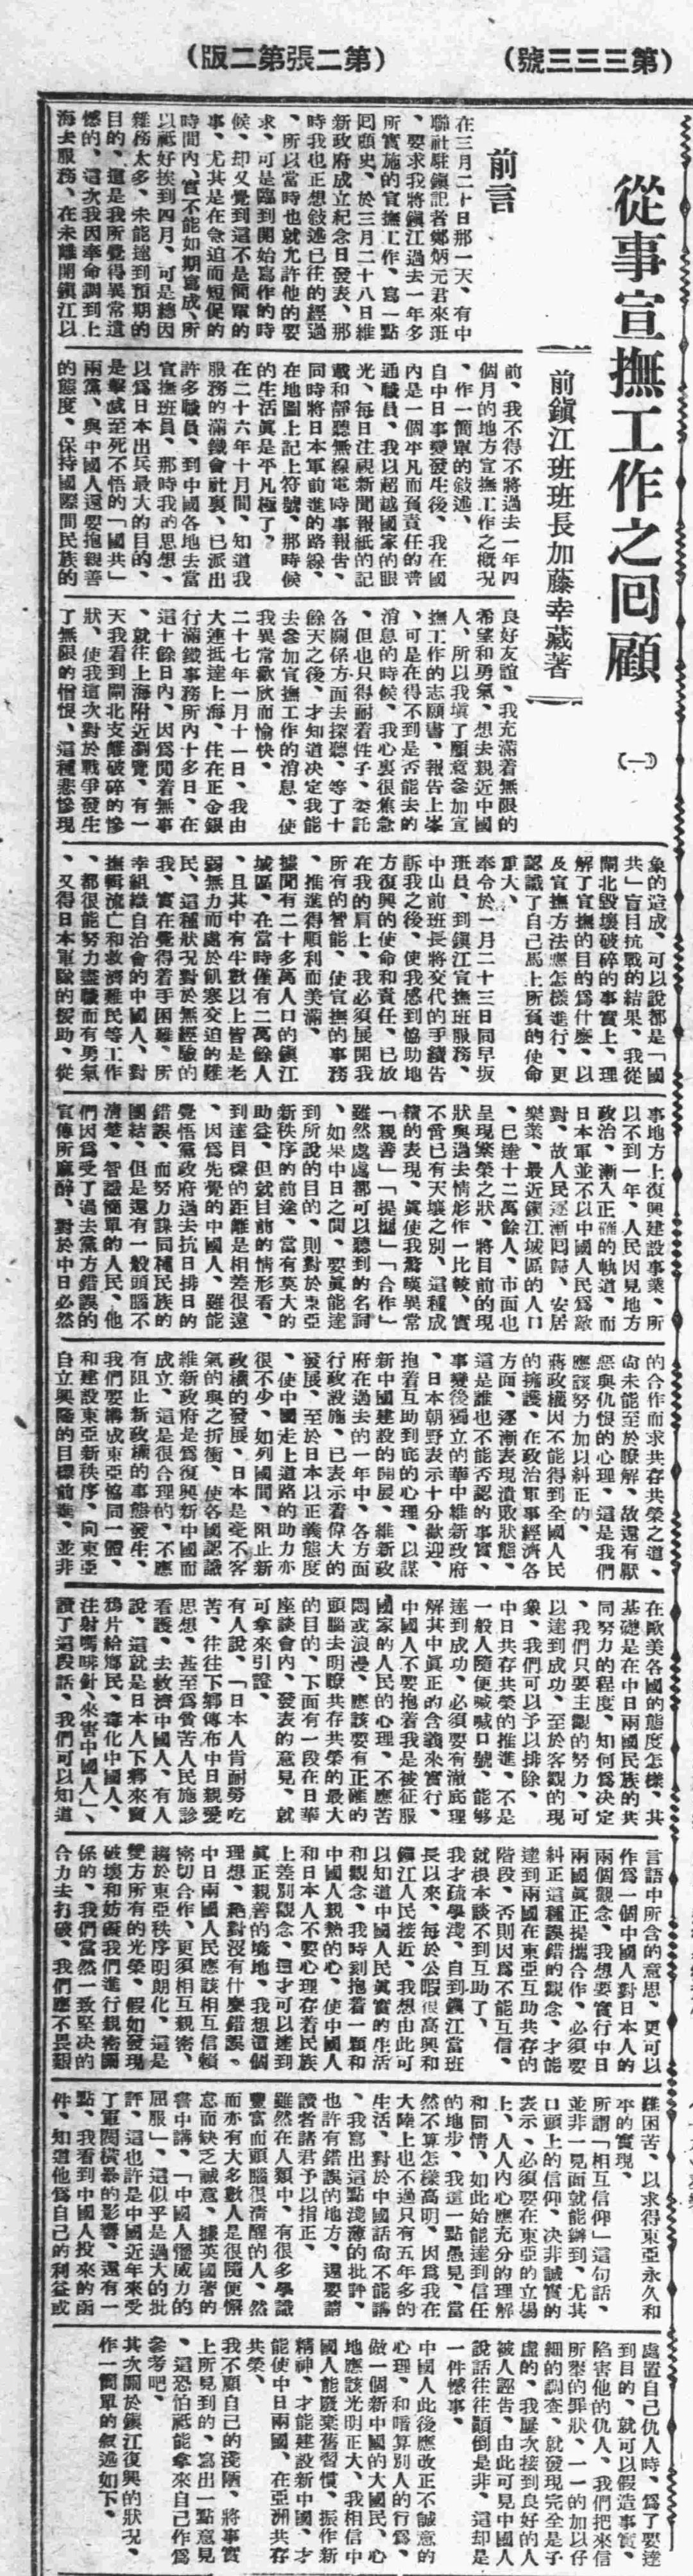 （第三三三號）
（第二張第二版）
從事宣撫工作之回顧
（一）
前鎮江班班長加藤幸藏著
前言
在三月二十日那一天、有中
聯社駐鎮記者鄭炳元君來班
、要求我將鎮江過去一年多
所實施的宣撫工作、寫一點
回顧史、於三月二十八日維
新政府成立紀念日發表、那
時我也正想敍述已往的經過
、所以當時也就允許他的要
求、可是臨到開始寫作的時
候、却又覺到這不是簡單的
事、尤其是在急迫而短促的
時間內、實不能如期寫成、所
以祗好挨到四月、可是總因
雜務太多、未能達到預期的
目的、這是我所覺得異常遺
憾的、這次我因奉命調到上
海去服務、在未離開鎮江以
前、我不得不將過去一年四
個月的地方宣撫工作之概況
、作一簡單的敍述、
自中日事變發生後、我在國
內是一個平凡而負責任的普
通職員、我以超越國家的眼
光、每日注視新聞報紙的記
載和靜聽無線電時事報告、
同時將日本軍前進的路線、
在地圖上記上符號、那時候
的生活眞是平凡極了、
在二十六年十月間、知道我
服務的滿鐵會社裏、已派出
許多職員、到中國各地去當
宣撫班員、那時我的思想、
以爲日本出兵最大的目的、
是擊滅至死不悟的「國共」
兩黨、與中國人還要抱親善
的態度、保持國際間民族的
良好友誼、我充滿着無限的
希望和勇氣、想去親近中國
人、所以我填了願意參加宣
撫工作的志願書、報告上峯
、可是在得不到是否能去的
消息的時候、我心裏很焦急
、但也只得耐着性子、委託
各關係方面去探聽、等了十
餘天之後、才知道決定我能
去參加宣撫工作的消息、使
我異常歡欣而愉快、
二十七年一月十一日、我由
大連抵達上海、住在正金銀
行滿鐵事務所內十多日、在
這十餘日內、因爲閒着無事
、就往上海附近瀏覽、有一
天我看到閘北支離破碎的慘
狀、使我這次對於戰爭發生
了無限的憎恨、這種悲慘現
象的造成、可以說都是「國
共」盲目抗戰的結果、我從
閘北毀壞破碎的事實上、理
解了宣撫的目的爲什麼、以
及宣撫方法應怎樣進行、更
認識了自己馬上所負的使命
重大、
奉令於一月二十三日同早坂
班員、到鎮江宣撫班服務、
中山前班長將交代的手續告
訴我之後、使我感到協助地
方復興的使命和責任、已放
在我的肩上、我必須展開我
所有的智能、使宣撫的事務
、推進得順利而美滿、
據聞有二十多萬人口的鎮江
城區、在當時僅有二萬餘人
、且其中有半數以上皆是老
弱無力而處於飢寒交迫的難
民、這種狀況對於無經驗的
我、實在覺得着手困難、所
幸組織自治會的中國人、對
撫輯流亡和救濟難民等工作
、都很能努力盡職而有勇氣
、又得日本軍隊的援助、從
事地方上復興建設事業、所
以不到一年、人民因見地方
政治、漸入正確的軌道、而
日本軍並不以中國人民爲敵
對、故人民逐漸回歸、安居
樂業、最近鎮江城區的人口
、已達十二萬餘人、市面也
呈現繁榮之狀、將目前的現
狀與過去情形作一比較、實
不啻已有天壤之別、這種成
績的表現、眞使我驚嘆異常
「親善」「提攜」「合作」
雖然處處都可以聽到的名詞
、如果中日之間、要眞能達
到所說的目的、則對於東亞
新秩序的前途、當有莫大的
助益、但就目前的情形看、
到達目標的距離是相差很遠
、因爲先覺的中國人、雖能
覺悟黨政府過去抗日排日的
錯誤、而努力謀同種民族的
團結、但是還有一般頭腦不
清楚、智識簡單的人民、他
們因爲受了過去黨方錯誤的
宣傳所麻醉、對於中日必然
的合作而求共存共榮之道、
尙未能至於瞭解、故還有厭
惡與仇恨的心理、這是我們
應該努力加以糾正的、
蔣政權因不能得到全國人民
的擁護、在政治軍事經濟各
方面、逐漸表現潰敗狀態、
這是誰也不能否認的事實、
事變後獨立的華中維新政府
、日本朝野表示十分歡迎、
抱着互助到底的心理、以謀
新中國建設的開展、維新政
府在過去的一年中、各方面
行政設施、已表示着偉大的
發展、至於日本以正義態度
、使中國走上道路的助力亦
很不少、如列國間、阻止新
政權的發展、日本是毫不客
氣的與之折衝、使各國認識
維新政府是爲復興新中國而
成立、這是很合理的、不應
有阻止新政權的事態發生、
我們要構成東亞協同一體、
和建設東亞新秩序、向東亞
自立興隆的目標前進、並非
在歐美各國的態度怎樣、其
基礎是在中日兩國民族的共
同努力的程度、如何爲決定
、我們只要主觀的努力、可
以達到成功、至於客觀的現
象、我們可以予以排除、
中日共存共榮的推進、不是
一般人隨便喊喊口號、能够
達到成功、必須要有澈底理
解其中眞正的含義來實行、
中國人不要抱着我是被征服
國家的人民的心理、不應苦
悶或浪漫、應該要有正確的
頭腦去明瞭共存共榮的最大
的目的、下面有一段在日華
座談會內、發表的意見、就
可拿來引證、
有人說、「日本人肯耐勞吃
苦、往往下鄉傳布中日親愛
思想、甚至爲貧苦人民施診
看護、去救濟中國人、有人
說、這就是日本人下鄉來賣
鴉片給鄉民、毒化中國人、
注射嗎啡針、來害中國人」、
讀了這段話、我們可以知道
言語中所含的意思、更可以
作爲一個中國人對日本人的
兩個觀念、我想要實行中日
兩國眞正提攜合作、必須要
糾正這種誤錯的觀念、才能
達到兩國在東亞互助共存的
階段、否則因爲不能互信、
就根本談不到互助了、
我才疏學淺、自到鎮江當班
長以來、每於公暇很高興和
鎮江人民接近、我想由此可
以知道中國人民眞實的生活
和觀念、我時刻抱着一顆和
中國人親熱的心、使中國人
和日本人不要心理存着民族
上差別觀念、這才可以達到
眞正親善的境地、我想這個
理想、絕對沒有什麼錯誤。
中日兩國人民應該相互信賴
密切合作、更須相互親密、
趨於東亞秩序明朗化、這是
雙方所有的光榮、假如發現
破壞和妨礙我們進行親密關
係的、我們當然一致堅決的
合力去打破、我們應不畏艱
難困苦、以求得東亞永久和
平的實現、
所謂「相互信仰」這句話、
並非一見面就能辦到、尤其
口頭上的信仰、決非誠實的
表示、必須要在東亞的立場
上、人人內心應充分的理解
和同情、如此始能達到信任
的地步、我這一點愚見、當
然不算怎樣高明、因爲我在
大陸上也不過只有五年多的
生活、對於中國話尙不能講
、我寫出這點淺薄的批評、
也許有錯誤的地方、還要請
讀者諸君予以指正、
雖然在人類中、有很多學識
豐富而頭腦很清醒的人、然
而亦有大多數人是很隨便懈
怠而缺乏誠意、據英國著的
書中講、「中國人懼威力的
屈服」、這似乎是過大的批
評、這也許是中國近年來受
了軍閥橫暴的影響、還有一
點、我看到中國人投來的函
件、知道他爲自己的利益或
處置自己仇人時、爲了要達
到目的、就可以假造事實、
陷害他的仇人、我們把來信
所舉的罪狀、一一的加以仔
細的調查、就發現完全是子
虛的、我屢次接到良好的人
被人誣告、由此可見中國人
說話往往顚倒是非、這却是
一件憾事、
中國人此後應改正不誠意的
心理、和暗算別人的行爲、
做一個新中國的大國民、心
地應該光明正大、我相信中
國人能廢棄舊習慣、振作新
精神、才能建設新中國、才
能使中日兩國、在亞洲共存
共榮、
我不顧自己的淺陋、將事實
上所見到的、寫出一點意見
、這恐怕祗能拿來自己作爲
參考吧、
其次關於鎮江復興的狀況、
作一簡單的敍述如下、